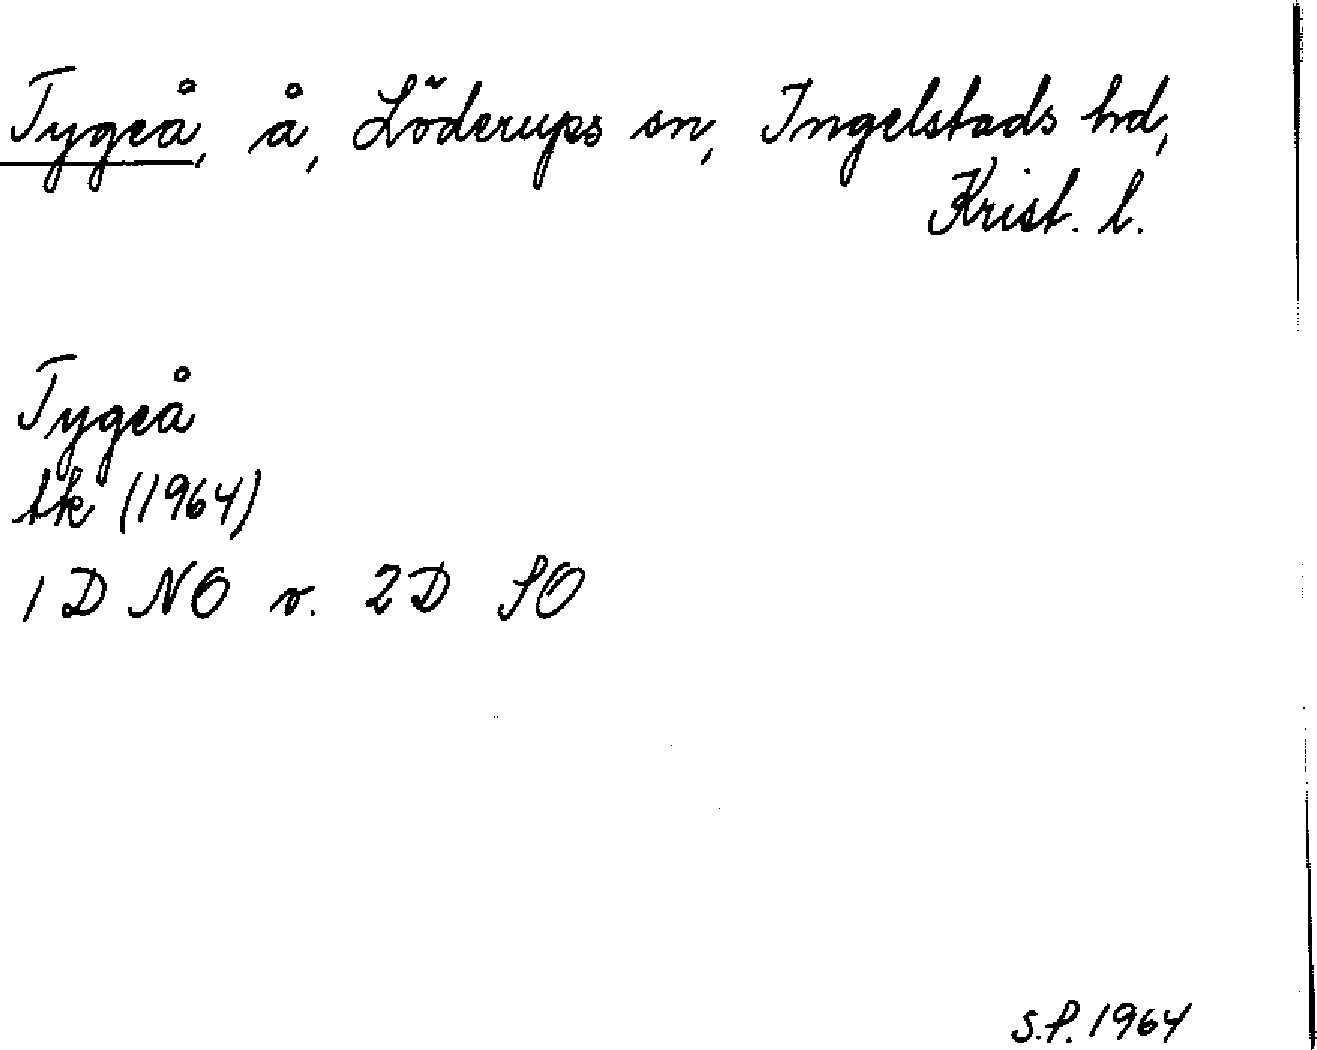 Tygeå, å, Löderups sn, Ingelstads hd,
Krist. l.
Tygeå
tk (1964)
1D NO v. 2D SO
S.P. 1964